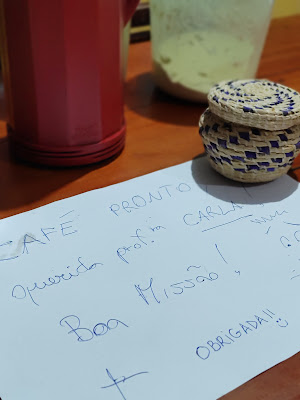 CAFÉ PRONTO
Querida prof.ra CARLA
Boa Missão!
OBRIGADA!!